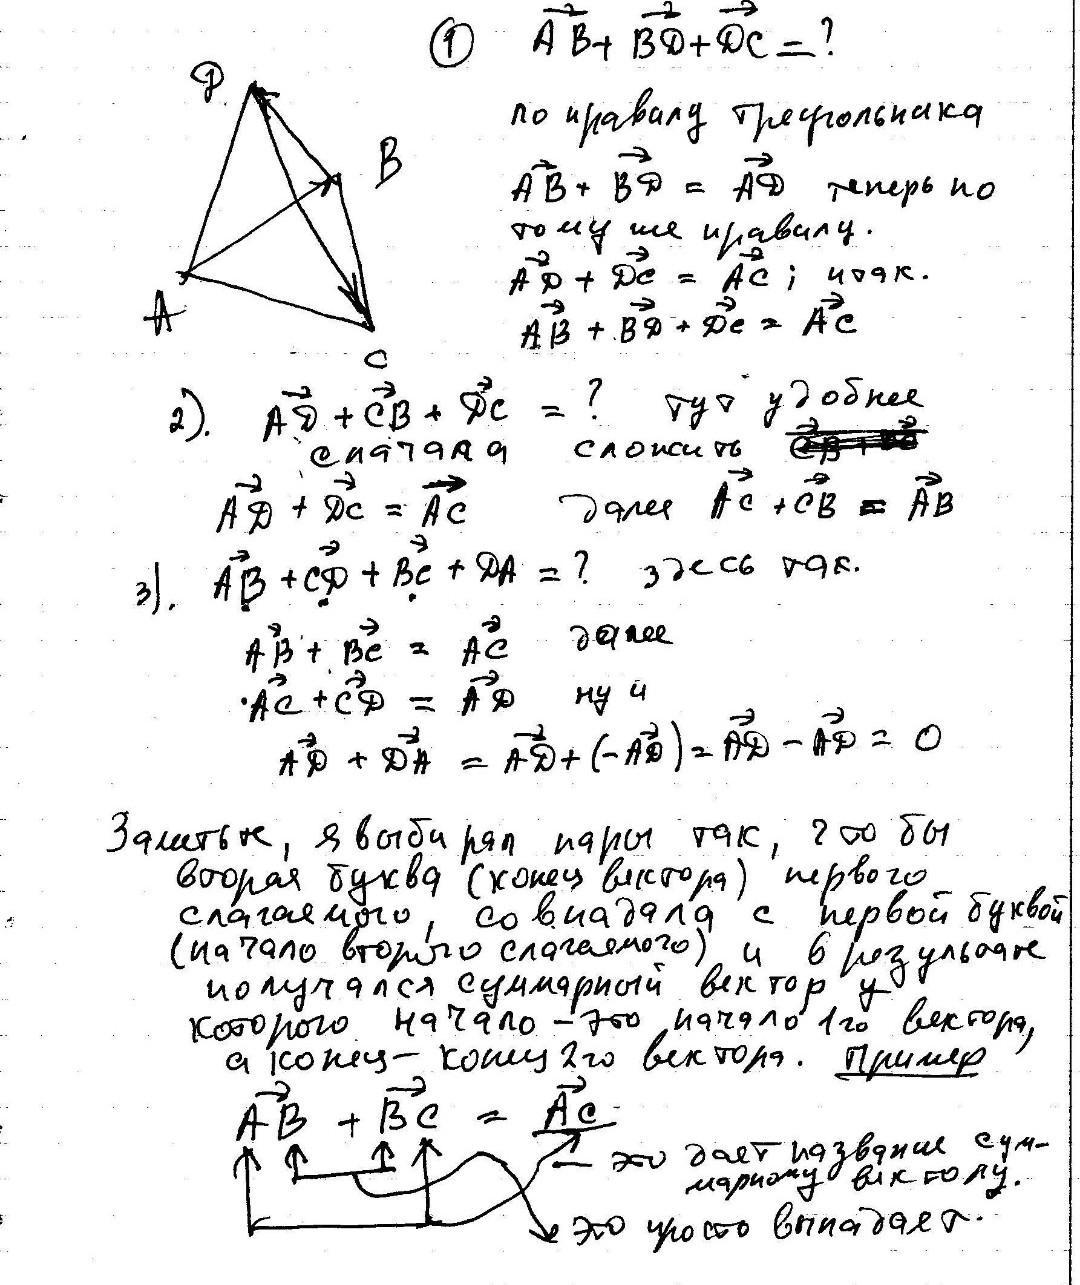 ① AB + BD + DC = ?
D
по правилу треугольника
B
AB + BD = AD теперь по
тому же правилу.
A
AD + DC = AC; итак.
AB + BD + DC = AC
C
2). AD + CB + DC = ? тут удобнее
сначала сложить
AD + DC = AC далее AC + CB = AB
3). AB + CD + BC + DA = ? здесь так.
AB + BC = AC далее
AC + CD = AD ну и
AD + DA = AD + (-AD) = AD - AD = 0
Заметьте, я выбирал пары так, что бы
вторая буква (конец вектора) первого
слагаемого, совпадала с первой буквой
(начало второго слагаемого) и в результате
получался суммарный вектор у
которого начало - это начало 1го вектора,
а конец - конец 2го вектора. Пример
AB + BC = AC
- это дает название сум-
марному вектору.
это просто выпадает.